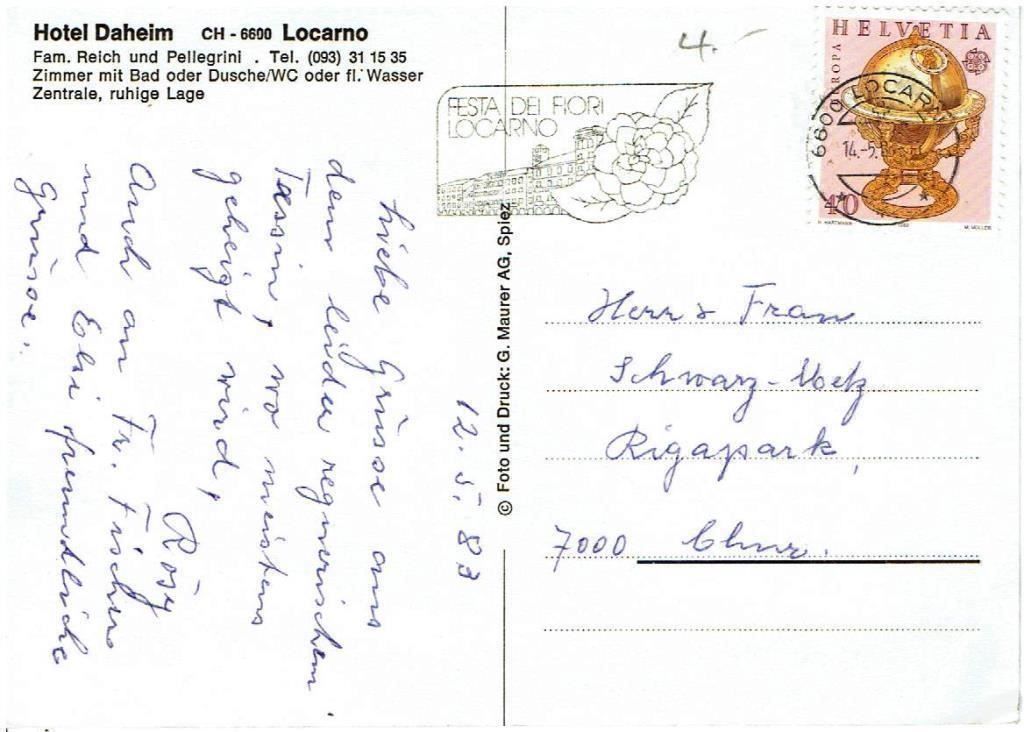 Hotel Daheim CH - 6600 Locarno
Fam. Reich und Pellegrini . Tel. (093) 31 15 35
Zimmer mit Bad oder Dusche/WC oder fl. Wasser
Zentrale, ruhige Lage
4.-
FESTA DEI FIORI
LOCARNO
HELVETIA
EUROPA
6600 LOCARNO
14.-5.
40
M. MÜLLER
12. 5. 83
Liebe Grüsse aus
dem leider regnerischem
Tessin, wo meistens
geheizt wird,
Rösy
Auch an Fr. Fischer
und Elsi freundliche
Grüsse.
© Foto und Druck: G. Maurer AG, Spiez
Herr & Frau
Schwarz-
Rigapark,
7000 Chur.